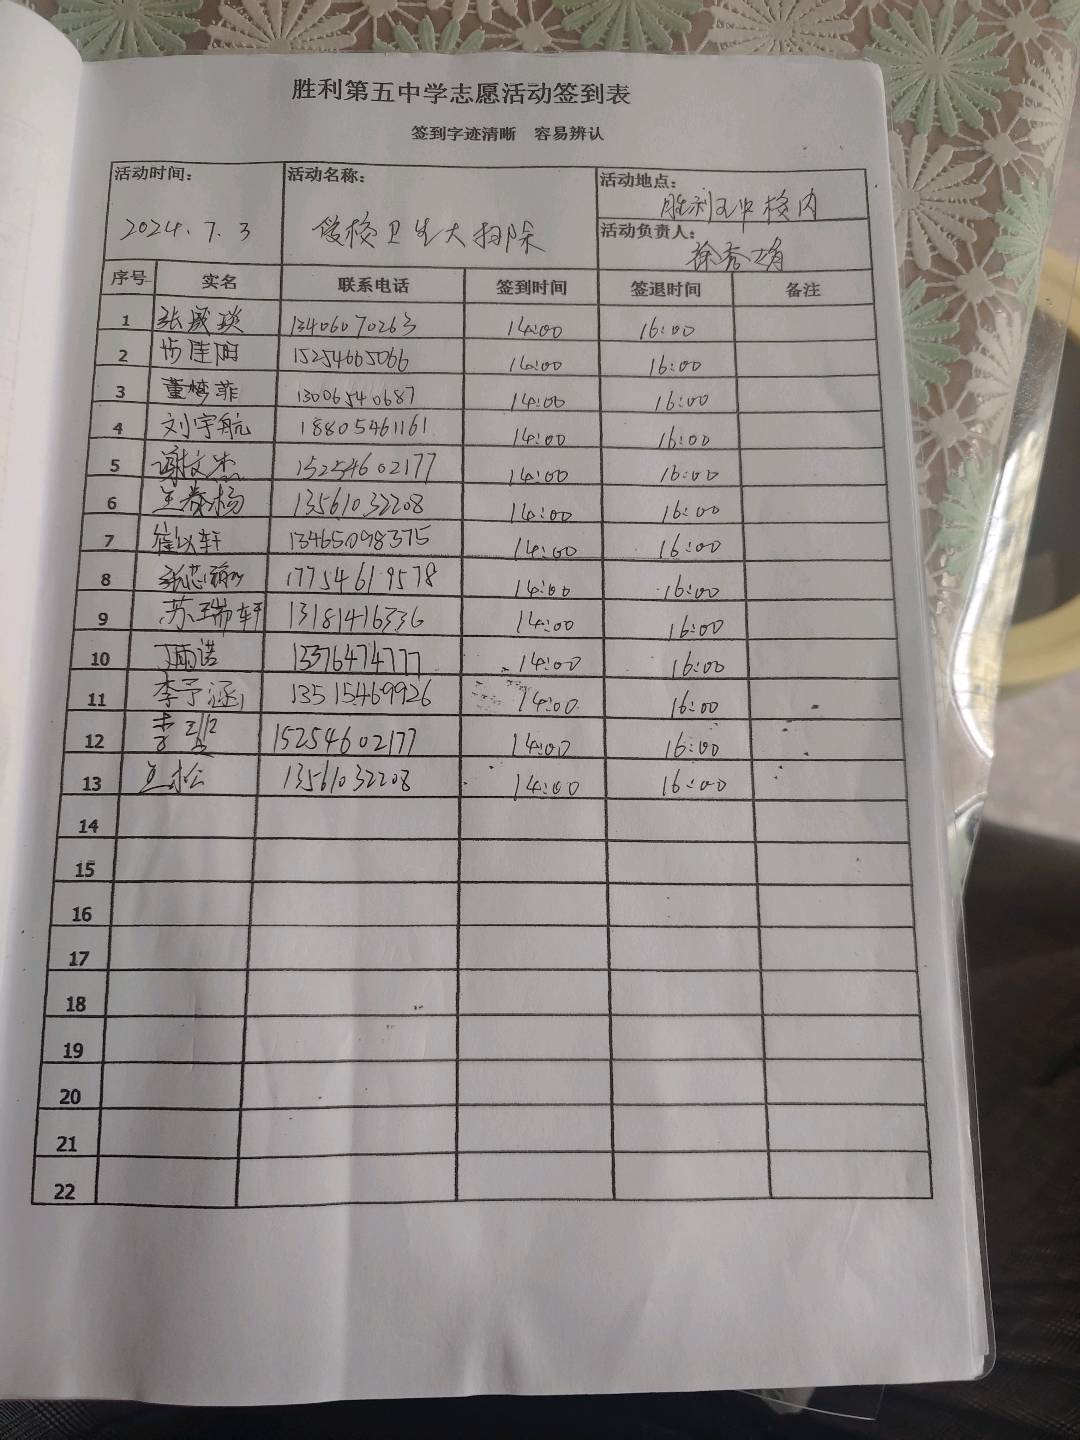 胜利第五中学志愿活动签到表
签到字迹清晰 容易辨认
活动时间: 活动名称: 活动地点:
2024.7.3 校卫生大扫除 胜利五中校内
活动负责人: 徐秀娟
序号 实名 联系电话 签到时间 签退时间 备注
1 张 13406070263 14:00 16:00
2 步佳阳 15254665066 14:00 16:00
3 董梦菲 13006540687 14:00 16:00
4 刘宇航 18805461161 14:00 16:00
5 谢文杰 15254602177 14:00 16:00
6 王春杨 13561032208 14:00 16:00
7 崔以轩 13465098375 14:00 16:00
8 张 17754619578 14:00 16:00
9 苏瑞轩 13181416336 14:00 16:00
10 丁雨诺 13376474777 14:00 16:00
11 李予涵 13515469926 14:00 16:00
12 李 15254602177 14:00 16:00
13 王松 13561032208 14:00 16:00
14
15
16
17
18
19
20
21
22